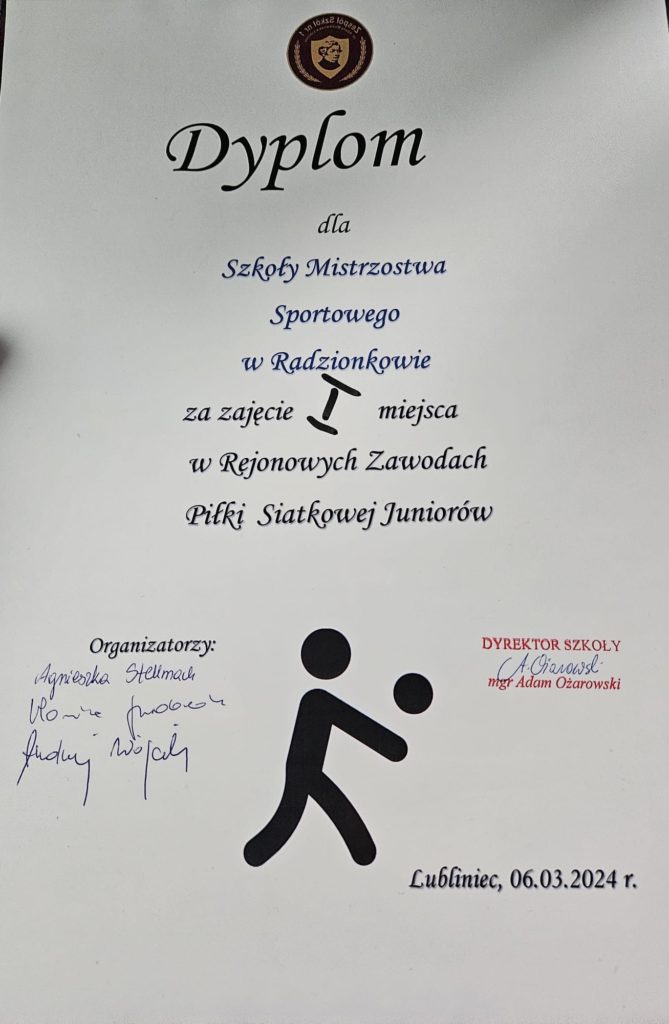 Zespół Szkół nr 1
Dyplom
dla
Szkoły Mistrzostwa
Sportowego
w Radzionkowie
za zajęcie I miejsca
w Rejonowych Zawodach
Piłki Siatkowej Juniorów
Organizatorzy:
Agnieszka Stellmach
Andrzej Wójcik
DYREKTOR SZKOŁY
A. Ożarowski
mgr Adam Ożarowski
Lubliniec, 06.03.2024 r.